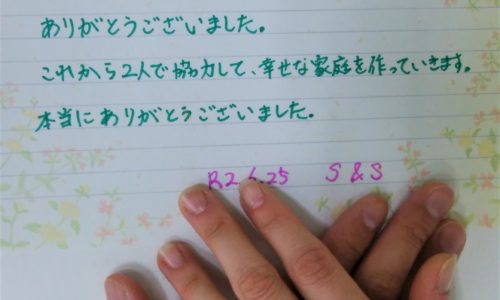 ありがとうございました。
これから2人で協力して、幸せな家庭を作っていきます。
本当にありがとうございました。
R2.6.25 S&S